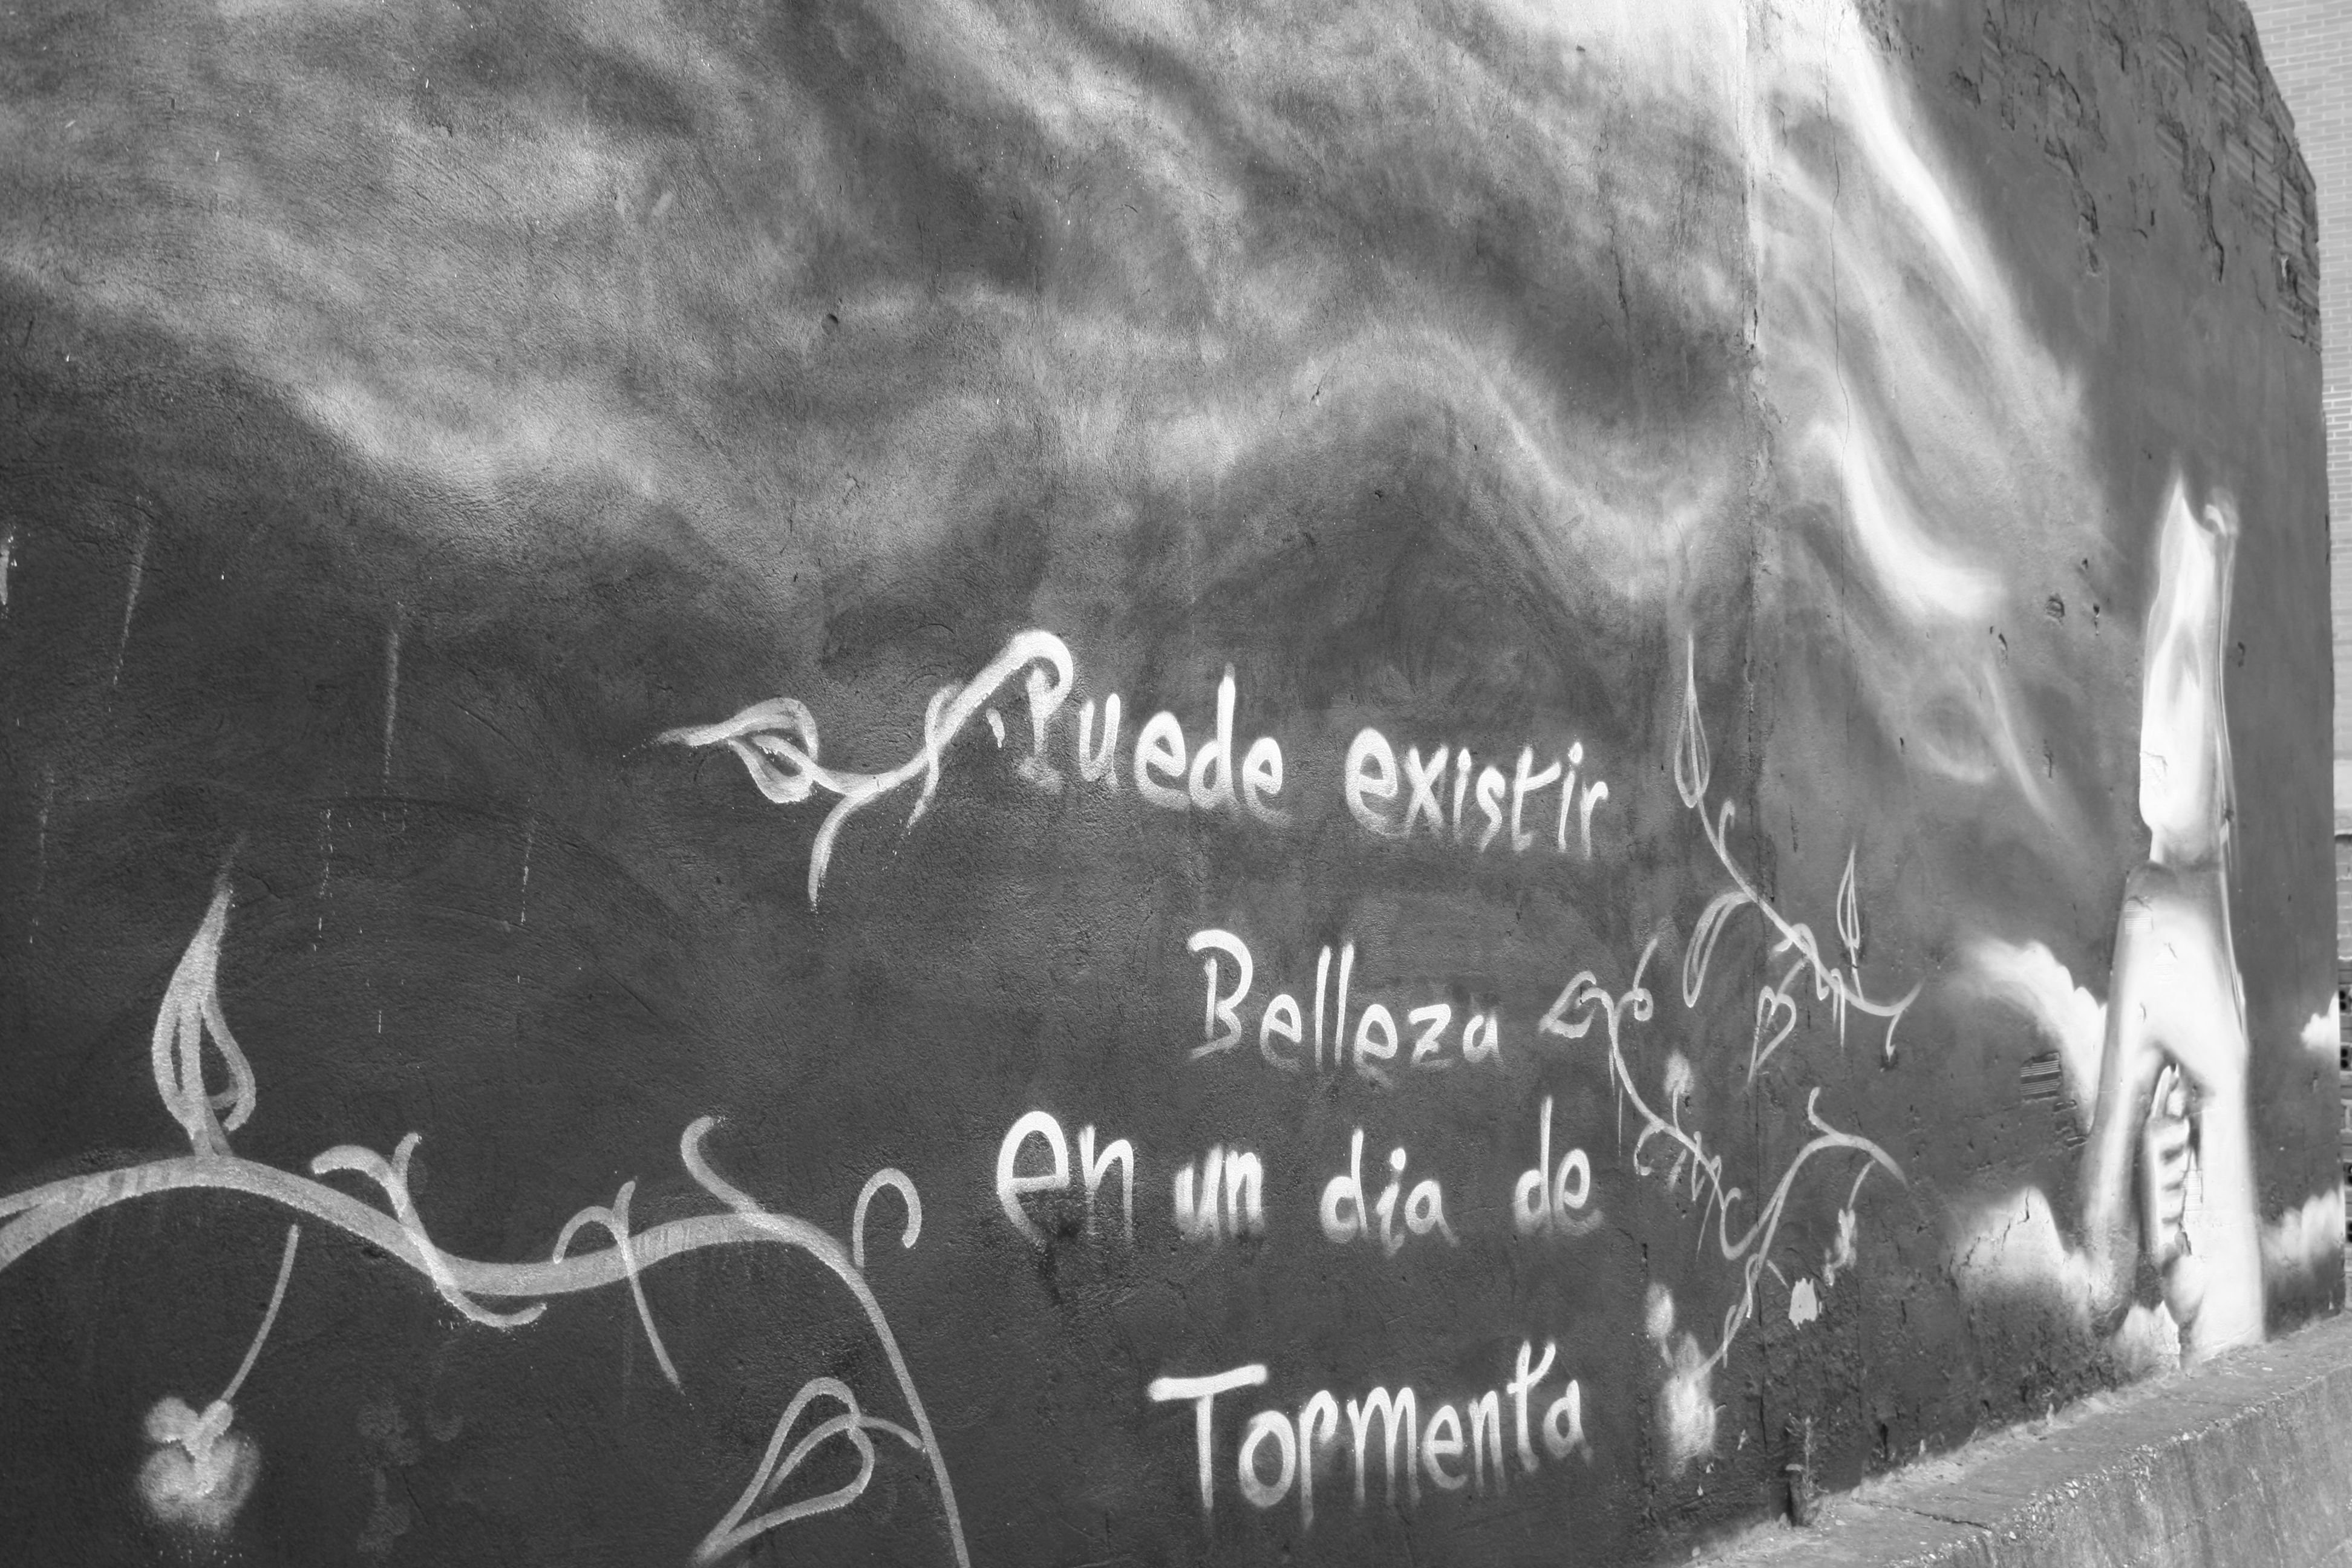 Puede existir
Belleza
en un dia de
Tormenta